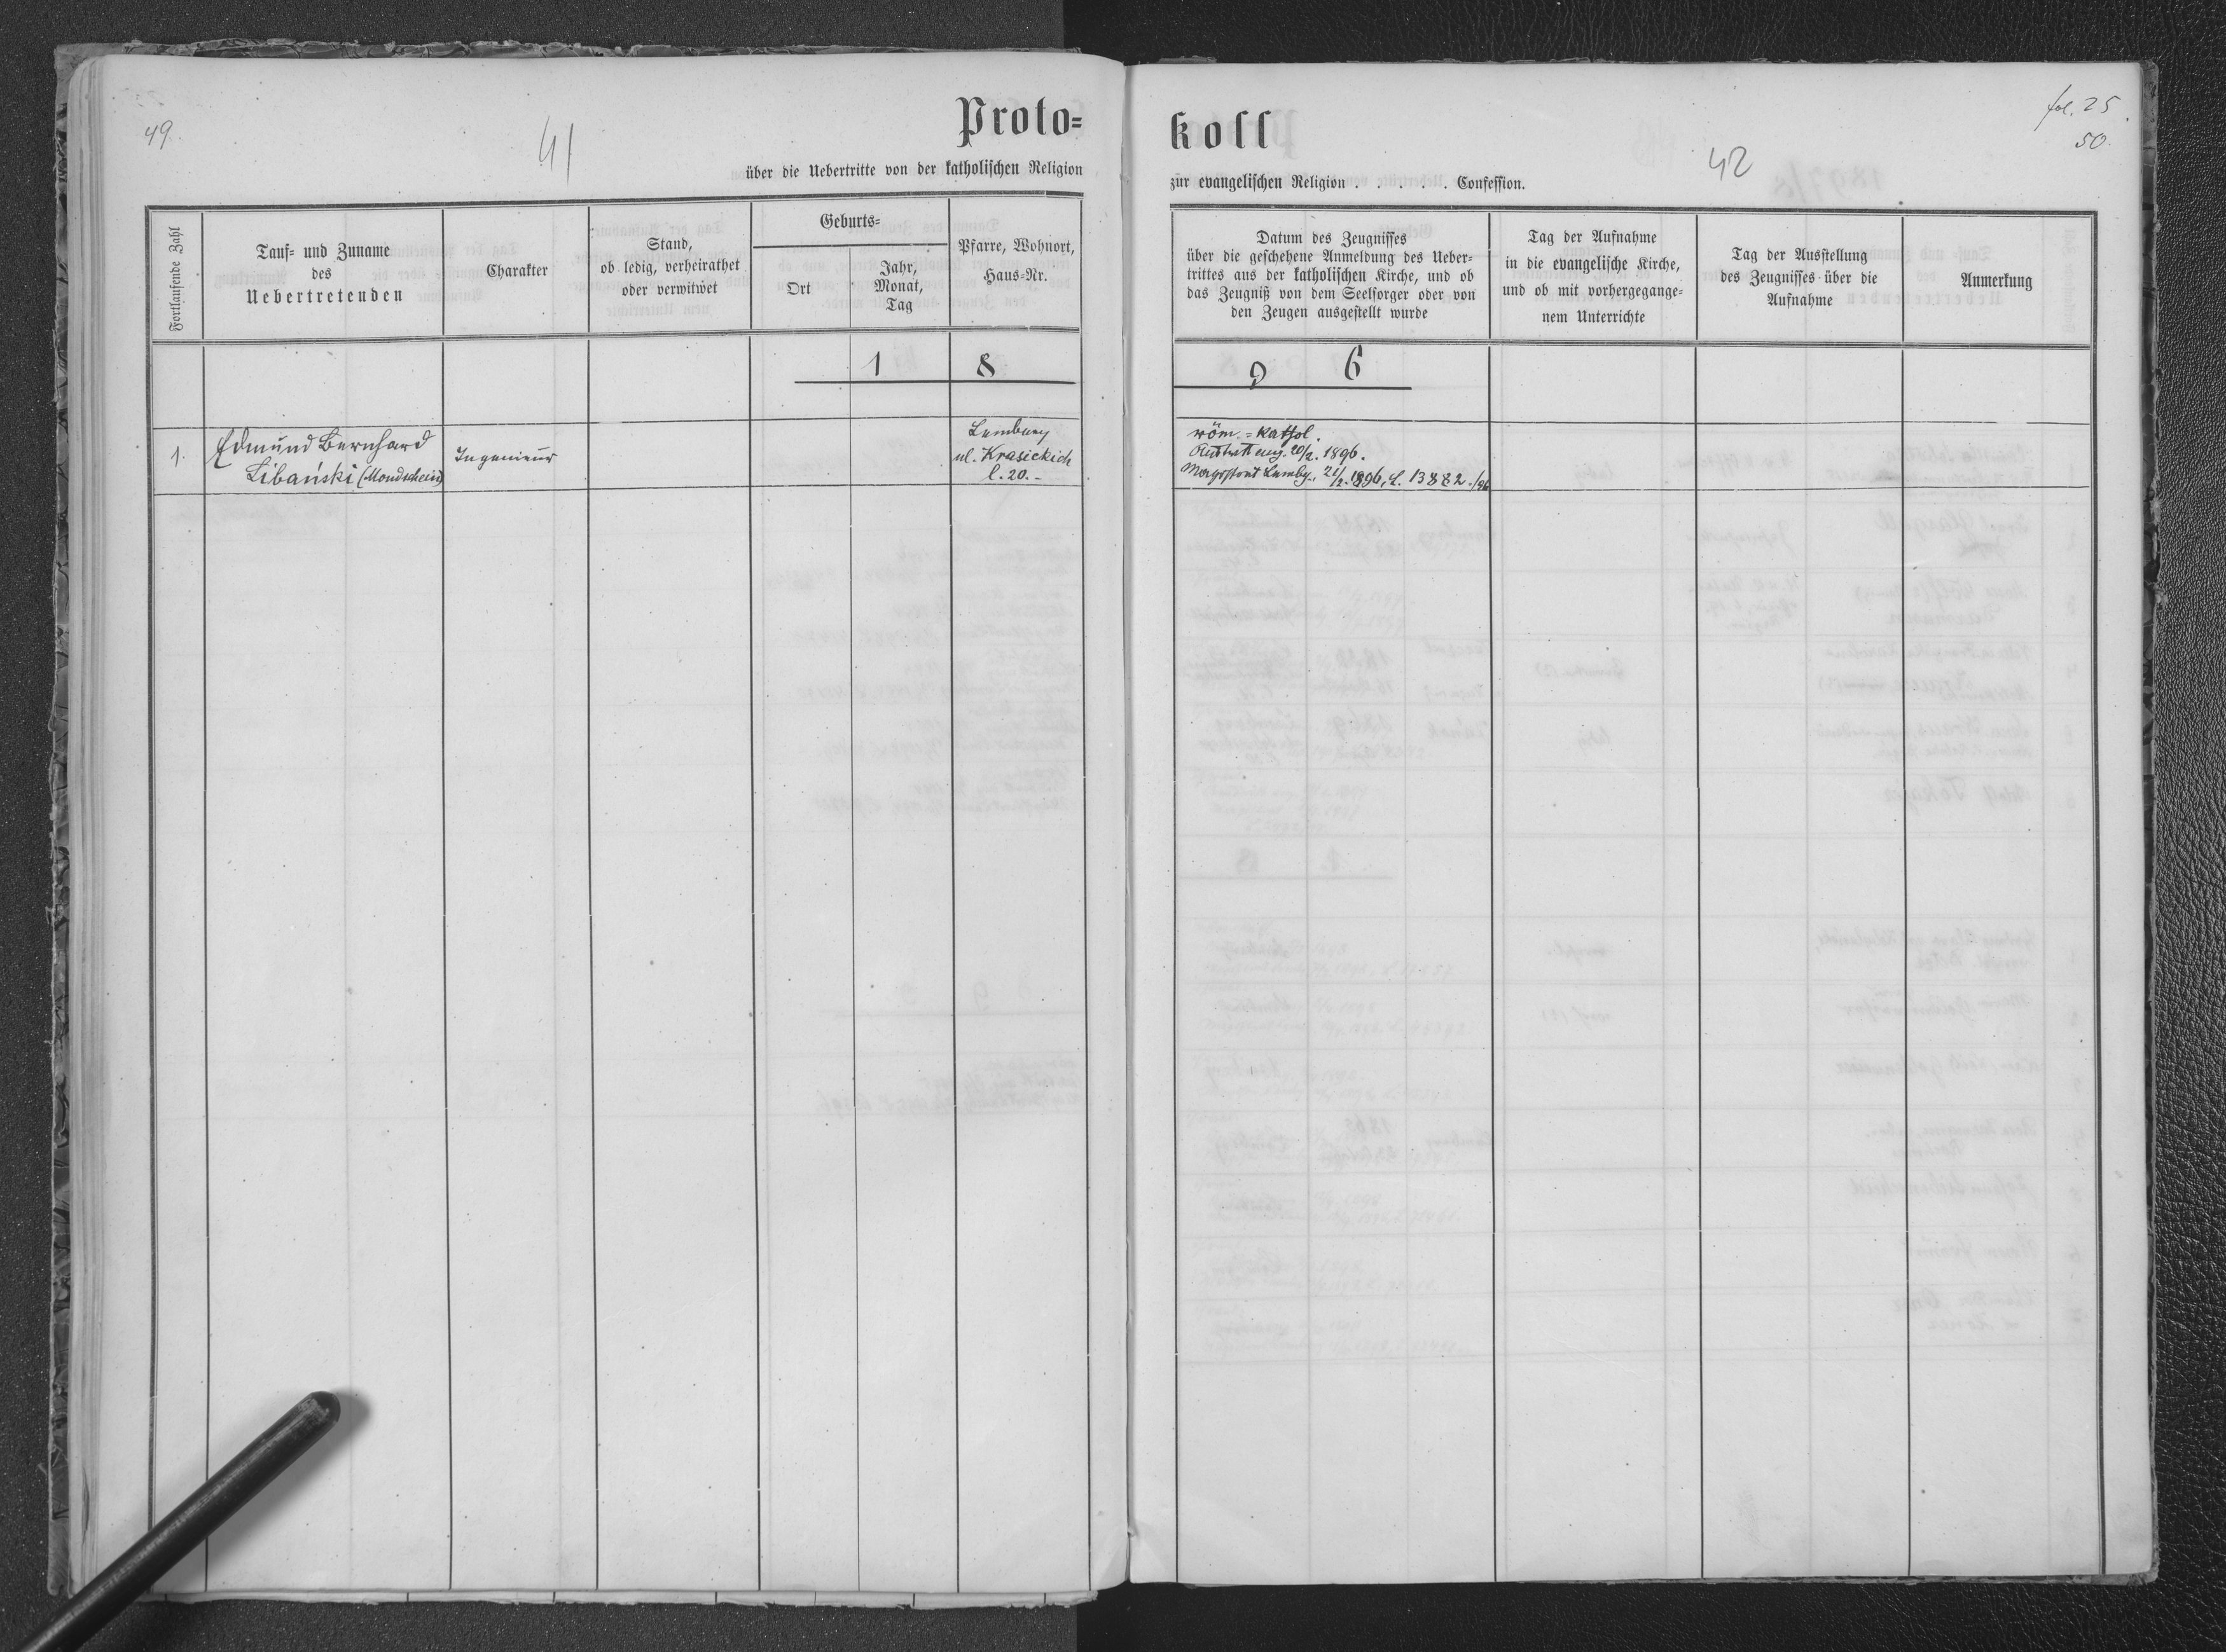 49.
41
Proto=
über die Uebertritte von der katholischen Religion
Fortlaufende Zahl
Tauf= und Zuname
des
Uebertretenden
Charakter
Stand,
ob ledig, verheirathet
oder verwitwet
Geburts=
Ort
Jahr,
Monat,
Tag
Pfarre, Wohnort,
Haus=Nr.
1 8
1. Edmund Bernhard
Libański (Mondschein)
Ingenieur
Lemberg
ul. Krasickich
l. 20. -
fol. 25.
50.
42
koll
zur evangelischen Religion . . . . . . Confession.
Datum des Zeugnisses
über die geschehene Anmeldung des Ueber=
trittes aus der katholischen Kirche, und ob
das Zeugniß von dem Seelsorger oder von
den Zeugen ausgestellt wurde
Tag der Aufnahme
in die evangelische Kirche,
und ob mit vorhergegange=
nem Unterrichte
Tag der Ausstellung
des Zeugnisses über die
Aufnahme
Anmerkung
9 6
röm. = kathol.
20/2. 1896.
Lemby., 21/2. 1896, L. 13882./96